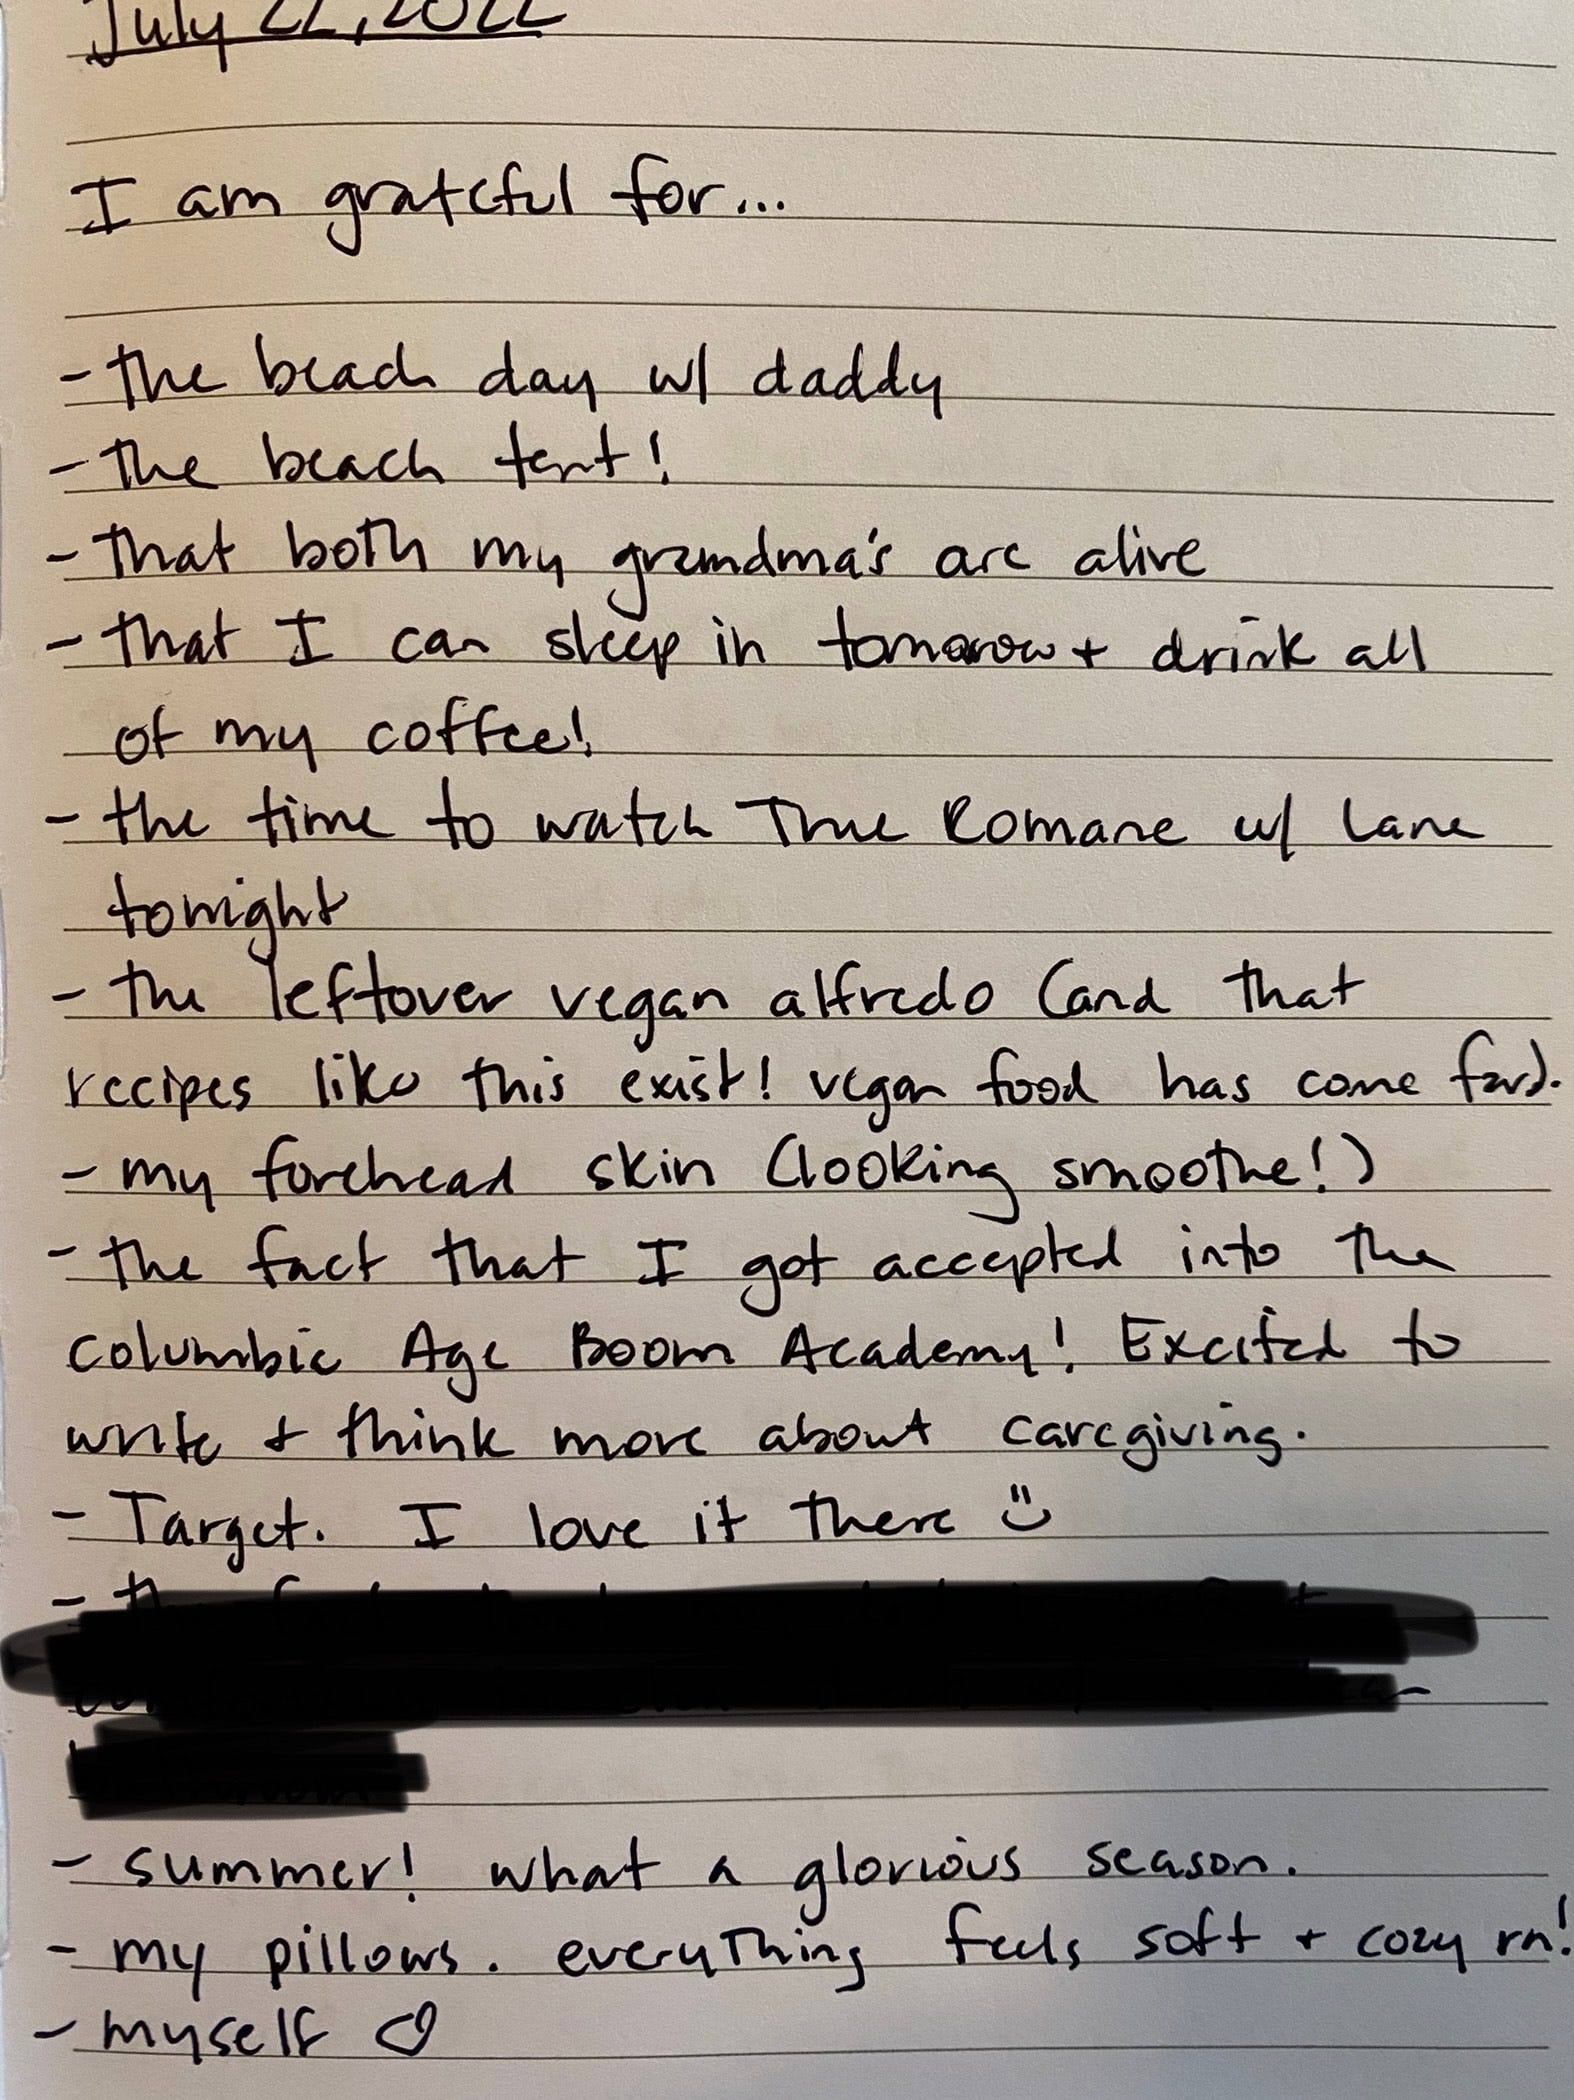 July 22, 2022
I am grateful for...
- the beach day w/ daddy
- the beach tent!
- that both my grandma's are alive
- that I can sleep in tomorrow + drink all
of my coffee!
- the time to watch True Romance w/ Lane
tonight
- the leftover vegan alfredo (and that
recipes like this exist! vegan food has come far).
- my forehead skin (looking smoothe!)
- the fact that I got accepted into the
Columbia Age Boom Academy! Excited to
write + think more about caregiving.
- Target. I love it there :)
-
- summer! what a glorious season.
- my pillows. everything feels soft + cozy rn!
- myself ♡